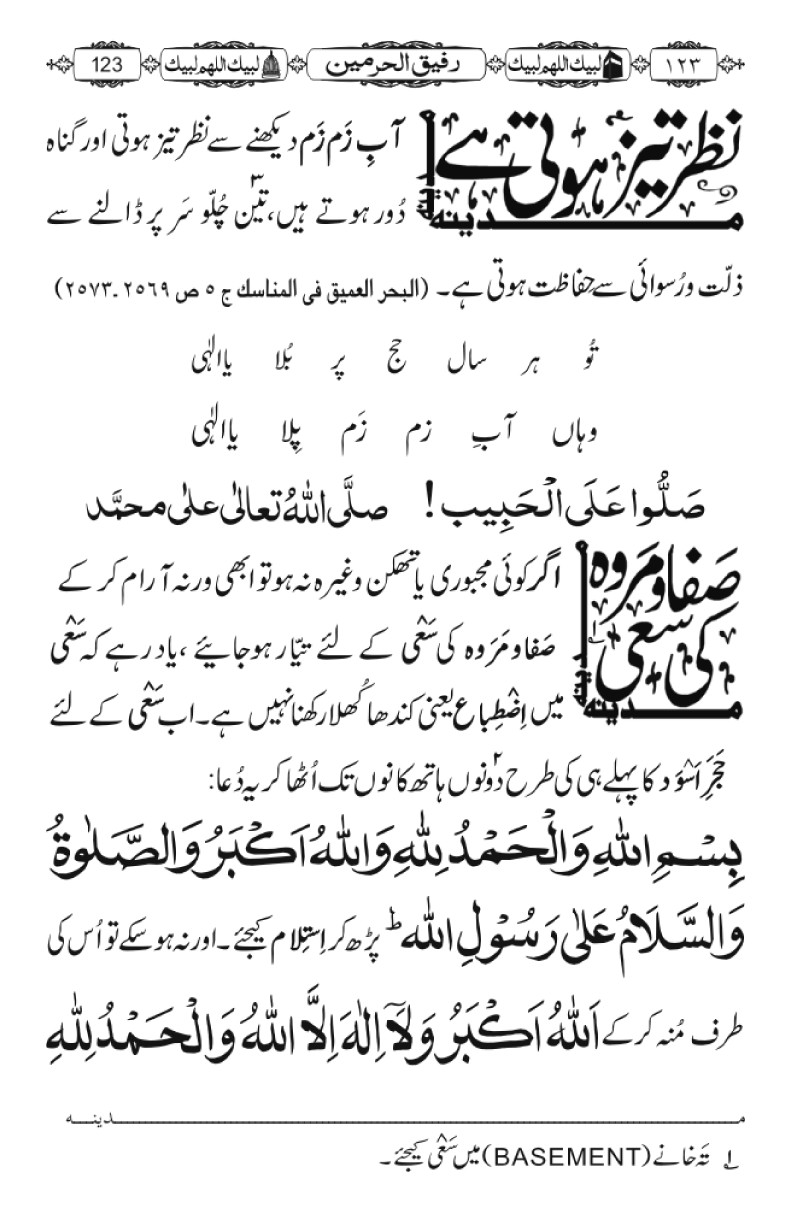 ١٢٣ لبیك اللھم لبیك رفیق الحرمین لبیك اللھم لبیك 123
نظر تیز ہوتی ہے
آبِ زَم زَم دیکھنے سے نظر تیز ہوتی اور گناہ
دُور ہوتے ہیں، تین ۳ چُلّو سَر پر ڈالنے سے
ذلّت و رُسوائی سے حِفاظت ہوتی ہے۔ (البحر العمیق فی المناسك ج ٥ ص ٢٥٦٩۔٢٥٧٣)
تُو ہر سال حج پر بُلا یا الٰہی
وہاں آبِ زم زَم پِلا یا الٰہی
صَلُّوا عَلَی الْحَبِیب! صلَّی اللهُ تعالیٰ علیٰ محمَّد
صَفا و مَروہ کی سَعْی ۱؎
اگر کوئی مجبوری یا تھکن وغیرہ نہ ہو تو ابھی ورنہ آرام کر کے
صَفا و مَروَہ کی سَعْی کے لئے تیّار ہو جایئے ، یاد رہے کہ سَعْی
میں اِضْطِباع یعنی کندھا کُھلا رکھنا نہیں ہے۔ اب سَعْی کے لئے
حَجَرِ اَسْوَد کا پہلے ہی کی طرح دونوں ۲ ہاتھ کانوں تک اُٹھا کر یہ دُعا:
بِسْمِ اللهِ وَالْحَمْدُ لِلّٰهِ وَاللهُ اَكْبَرُ وَالصَّلٰوةُ
وَالسَّلَامُ عَلٰی رَسُوْلِ الله ؕ پڑھ کر اِستِلام کیجئے۔ اور نہ ہو سکے تو اُس کی
طرف مُنہ کر کے اَللهُ اَكْبَرُ وَلَآ اِلٰهَ اِلَّا اللهُ وَالْحَمْدُ لِلّٰهِ
مدینہ
۱؎ تَہ خانے (BASEMENT) میں سَعْی کیجئے۔